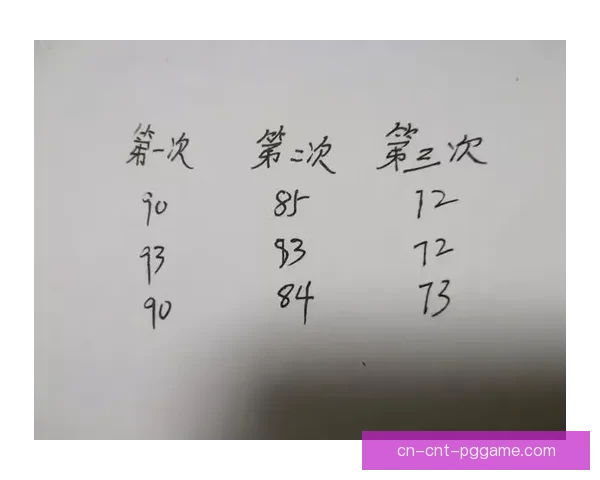 第一次 第二次 第三次
90 85 72
93 83 72
90 84 73
cn-cnt-pggame.com